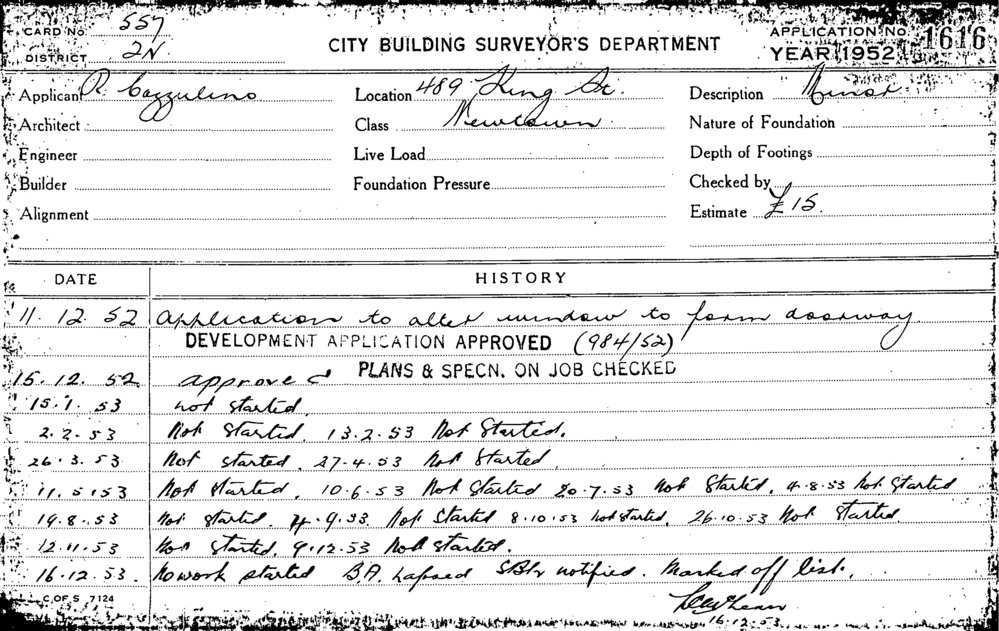 CARD No. 557
DISTRICT 2N
CITY BUILDING SURVEYOR'S DEPARTMENT
APPLICATION No. 1616
YEAR 1952
Applicant R. Cozzulino Location 489 King St. Description Minor
Architect Class Newtown Nature of Foundation
Engineer Live Load Depth of Footings
Builder Foundation Pressure Checked by
Alignment Estimate £15.
DATE HISTORY
11. 12. 52 Application to alter window to form doorway
DEVELOPMENT APPLICATION APPROVED (984/52)
15. 12. 52 approved PLANS & SPECN. ON JOB CHECKED
15.1. 53 not started.
2.2.53 Not Started. 13.2.53 Not Started.
26.3.53 Not started. 27.4.53 Not Started.
11.5.53 Not Started. 10.6.53 Not Started 20.7.53 Not Started. 4.8.53 Not Started
19.8.53 Not Started. 4.9.53. Not Started 8.10.53 not started. 26.10.53 Not Started.
12.11.53 Not Started. 9.12.53 Not Started.
16.12.53. No work started B.A. Lapsed notified. Marked off list.
C. OF S. 7124
16.12.53.